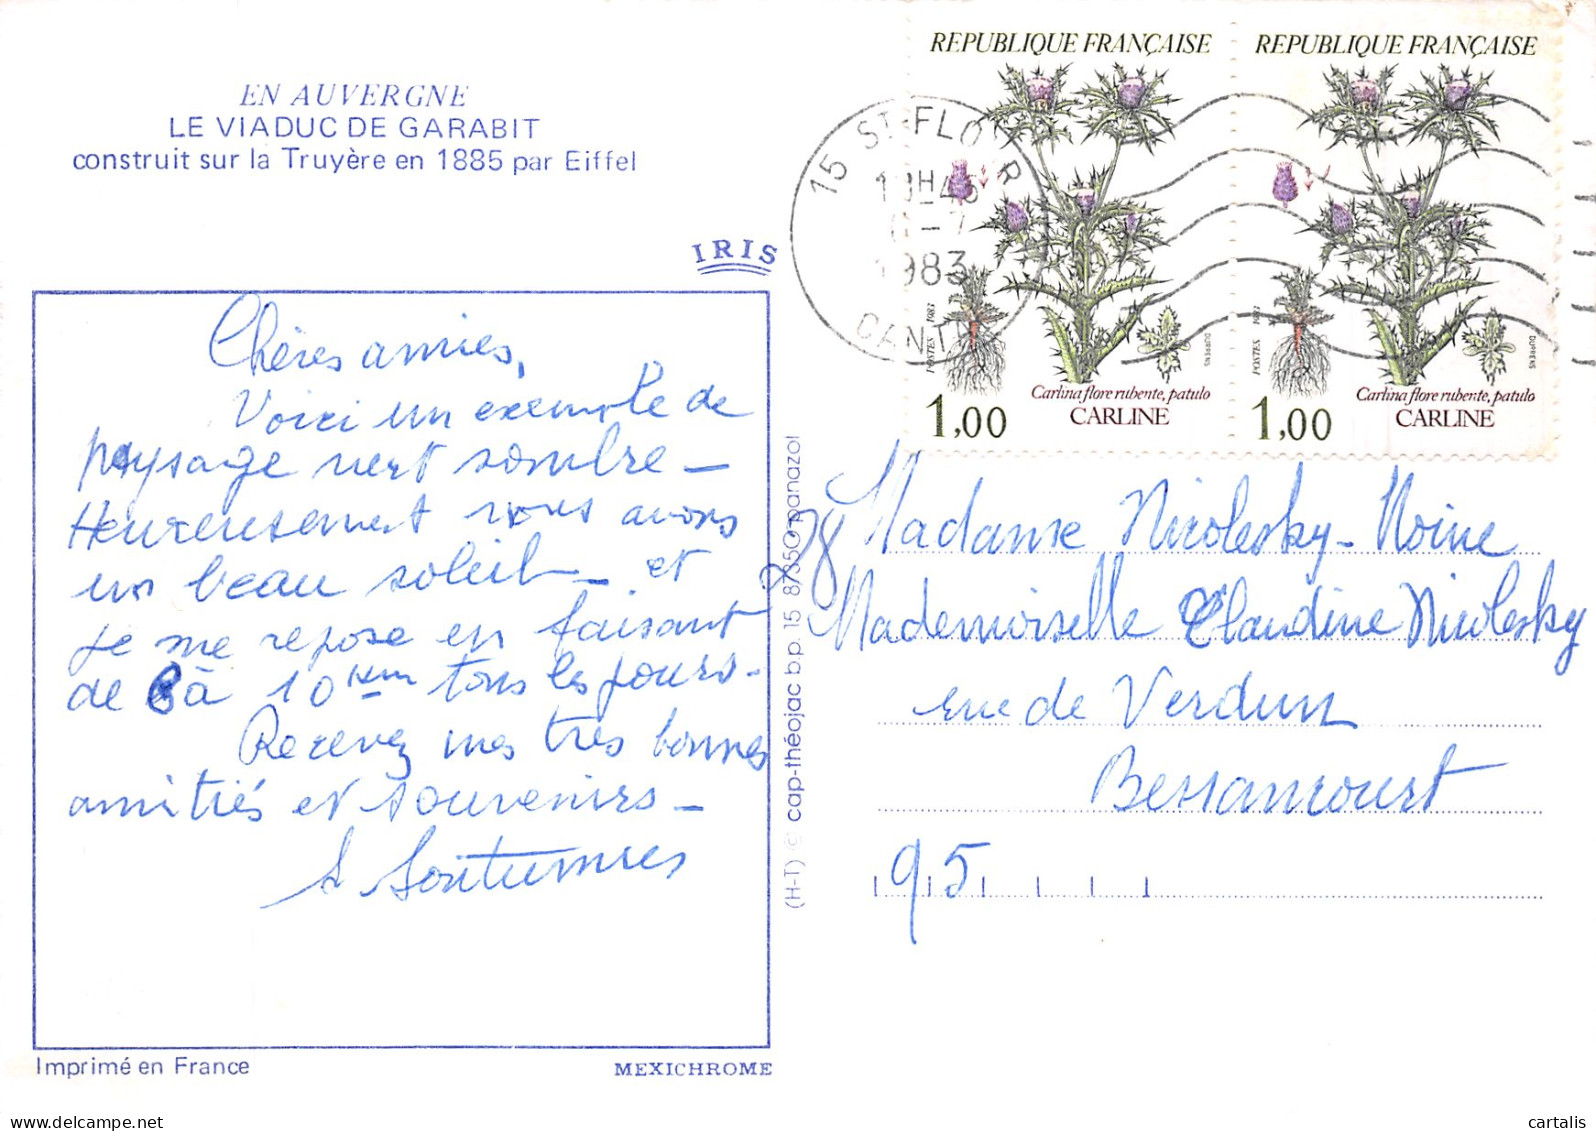 EN AUVERGNE
LE VIADUC DE GARABIT
construit sur la Truyère en 1885 par Eiffel
IRIS
Chères amies,
Voici un exemple de
paysage vert sombre –
Heureusement nous avons
un beau soleil – et
je me repose en faisant
de 8 à 10 km tous les jours.
Recevez mes très bonnes
amitiés et souvenirs –
Imprimé en France
MEXICHROME
(H-T) © cap-théojac b.p. 15 87350 panazol
REPUBLIQUE FRANÇAISE
POSTES 1983
DURRENS
Carlina flore rubente, patulo
1,00 CARLINE
REPUBLIQUE FRANÇAISE
POSTES 1983
DURRENS
Carlina flore rubente, patulo
1,00 CARLINE
15 ST-FLOUR
-7
1983
CANTAL
28
Madame Nicolesky - Moine
Mademoiselle Claudine Nicolesky
rue de Verdun
Bessancourt
95
delcampe.net
cartalis